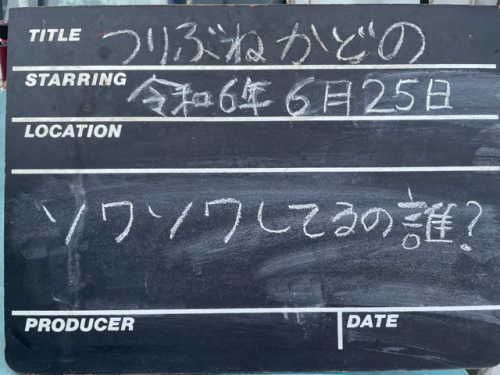 TITLE つりぶねかどの
STARRING 令和6年 6月25日
LOCATION
ソワソワしてるの誰?
PRODUCER DATE